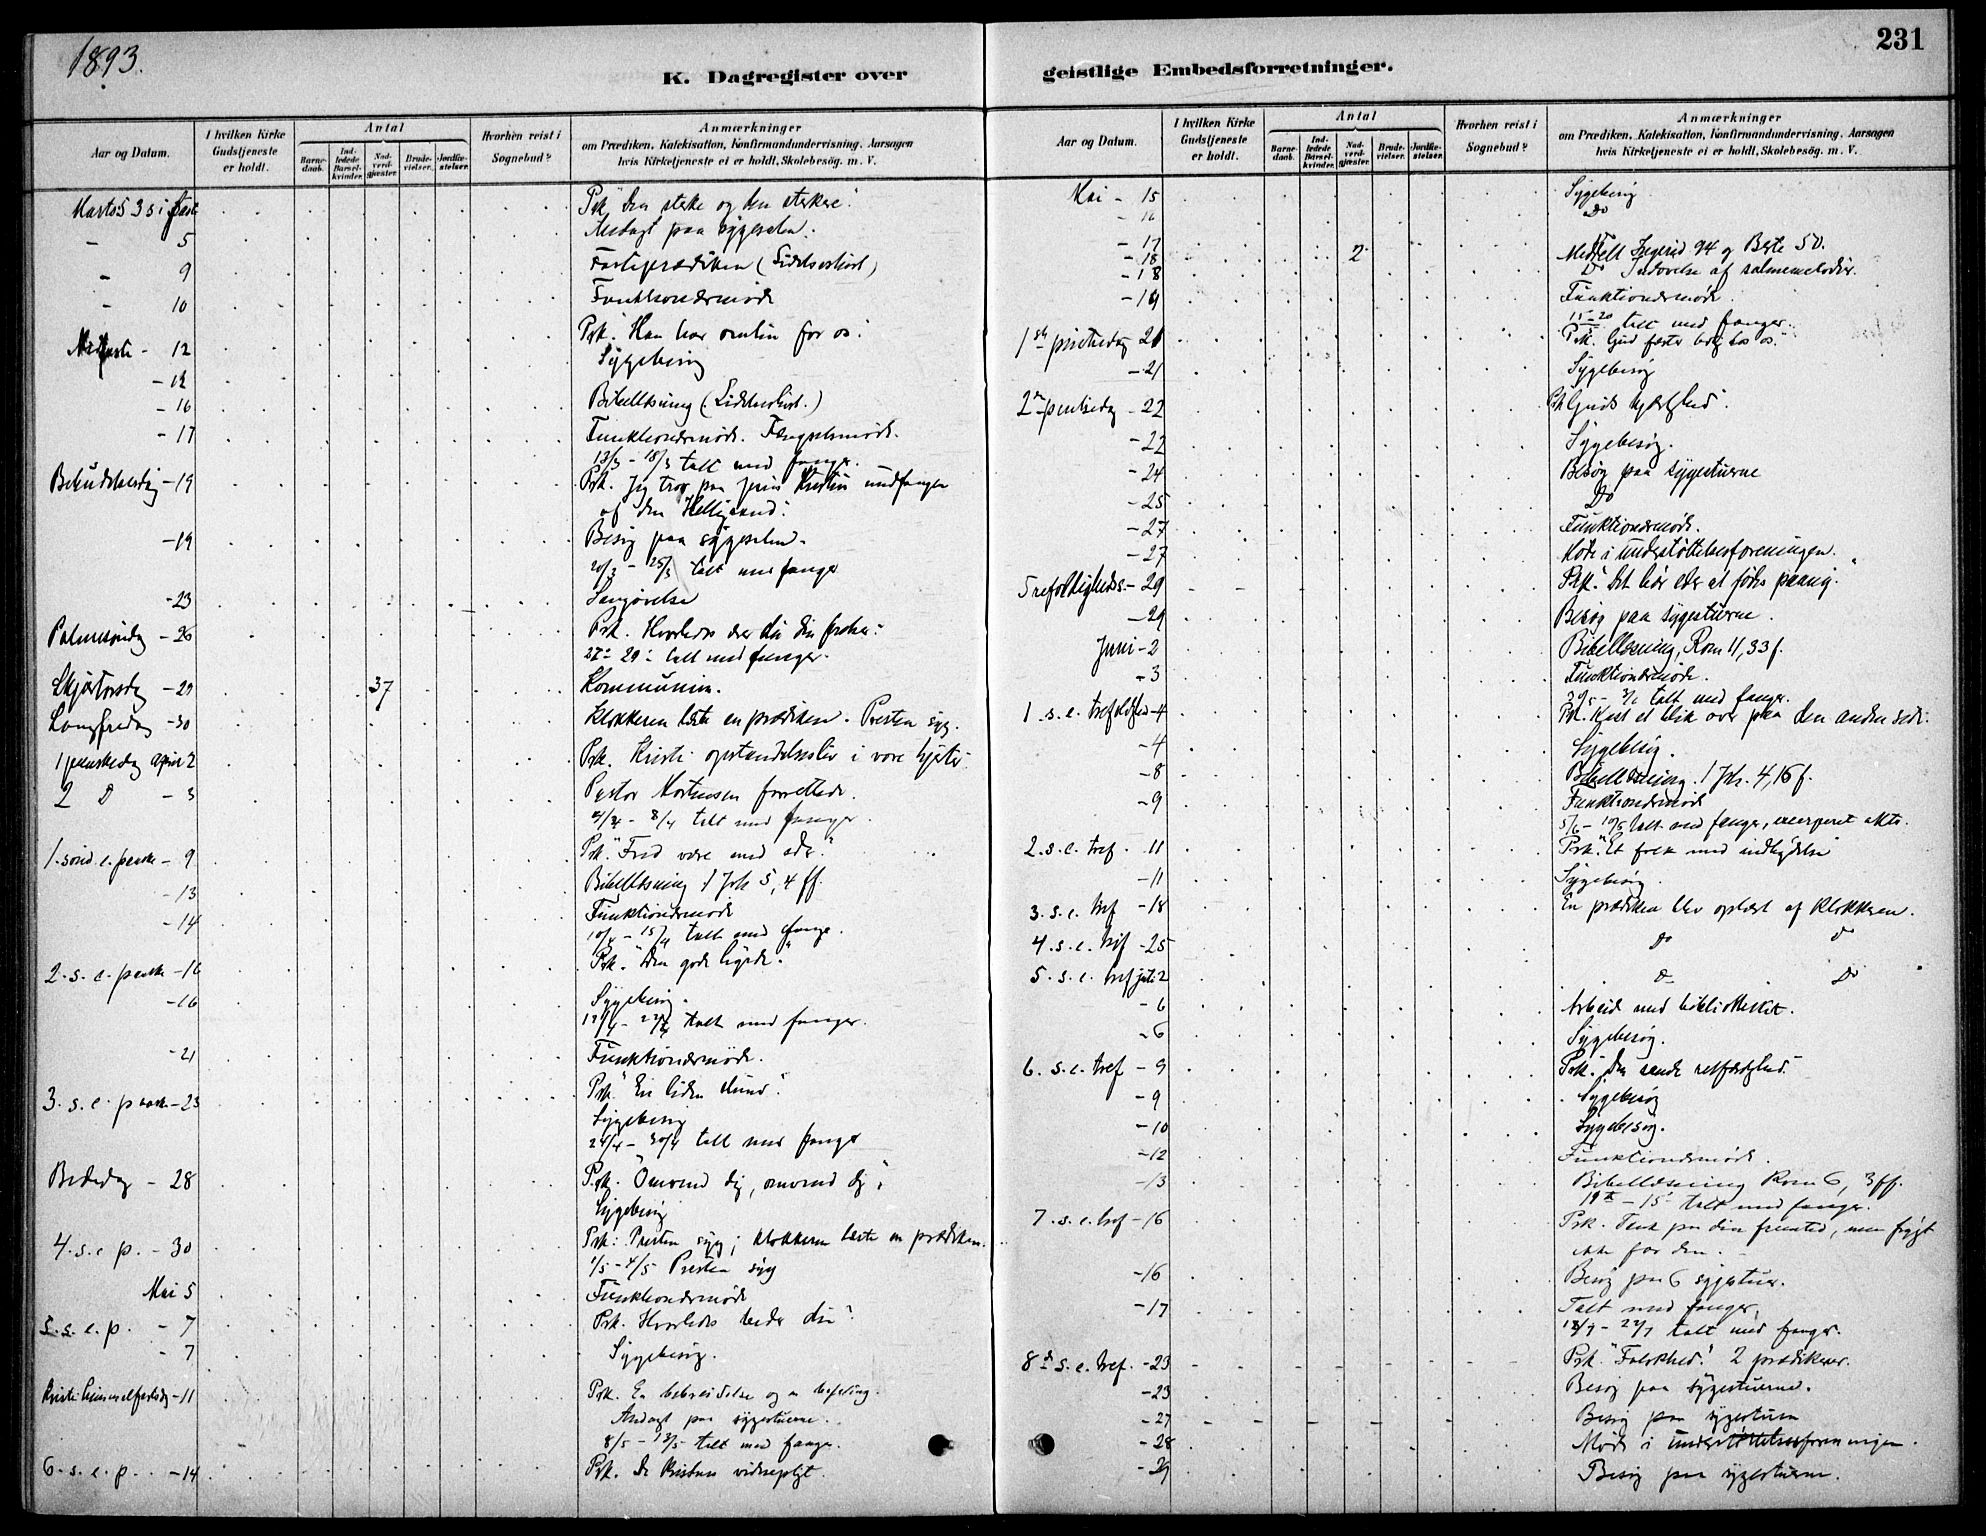 1893.
231
K. Dagregister over
geistlige Embedsforretninger.
Aar og Datum.
I hvilken Kirke Gudstjeneste er holdt.
Antal
Barnedaab.
Indledede Barselkvinder.
Nadverdgjæster.
Brudevielser.
Jordfæstelser.
Hvorhen reist i Sognebud?
Anmærkninger
om Prædiken, Katekisation, Konfirmandundervisning. Aarsagen
hvis Kirketjeneste ei er holdt, Skolebesög. m. V.
Marts 5 3 s i faste Prk. "Den sterke og den sterkere".
- 5 Andagt paa sygesalen.
- 9 Fasteprædiken (Lidelseshist)
- 10 Funktionærmøde
Midfaste - 12 Prk. "Han har omsu for os".
Sygebesøg
- 12
- 16 Bibellæsning (Lidelseshist.)
- 17 Funktionærmøde. Fængselsmøde.
13/3 - 18/3 talt med fanger.
Bebudelsesdag - 19 Prk. Jeg tror paa Jesus Kristus undfangen
af den Helligaand".
- 19 Besøg paa sygesalen.
20/3 - 25/3 talt med fanger
- 23 Sangøvelse
Palmesøndag - 26 Prk. Hvorledes er du din frelser".
27 - 29 talt med fanger.
Skjærtorsdag - 29 37 Kommunion.
Langfredag - 30 Klokkeren læste en prædiken. Presten syg.
1 paaskedag April 2 Prk. Kristi opstandelsesliv i vore hjerter
2 Do - 3 Pastor Mortensen forrettede.
4/4 - 8/4 talt med fanger.
1. sønd. e. paaske - 9 Prk. "Fred være med eder."
- 13 Bibellæsning 1 Joh 5, 4 ff.
- 14 Funktionærmøde
10/4 - 15/4 talt med fange.
2. s. e. paaske - 16 Prk. "Den gode hyrde."
- 16 Sygebesøg.
17/4 - 22/4 talt med fanger.
- 21 Funktionærmøde.
3. s. e. paaske - 23 Prk. "En liden stund".
Sygebesøg
24/4 - 30/4 talt med fanger
Bededag - 28 Prk. "Omvend dig, omvend dig".
Sygebesøg
4. s. e. p. - 30 Prk: Presten syg; klokkeren læste en prædiken.
1/5 - 4/5 Presten syg
Mai 5 Funktionærmøde
5. s. e. p. - 7 Prk. Hvorledes beder du?
- 7 Sygebesøg.
Kristi himmelfartsdag - 11 Prk. En bebreidelse og en befaling.
Andagt paa sygestuerne.
8/5 - 13/5 talt med fanger.
6. s. e. p. - 14 Prk. De Kristnes vidnepligt.
Aar og Datum.
I hvilken Kirke Gudstjeneste er holdt.
Antal
Barnedaab.
Indledede Barselkvinder.
Nadverdgjæster.
Brudevielser.
Jordfæstelser.
Hvorhen reist i Sognebud?
Anmærkninger
om Prædiken, Katekisation, Konfirmandundervisning. Aarsagen
hvis Kirketjeneste ei er holdt, Skolebesög. m. V.
Mai - 15 Sygebesøg
- 16 Do
- 17
- 18 2 94 og 50.
- 18 Do Indøvelse af salmemelodier.
- 19 Funktionærmøde.
15-20 talt med fanger.
1ste pintsedag 21 Prk. Gud fæster bolig hos os".
- 21 Sygebesøg
2den pintsedag - 22 Prk Guds kjærlighed".
- 22 Sygebesøg.
- 24 Besøg paa sygestuerne
- 25 Do
- 27 Funktionærmøde.
- 27 Møde i understøttelsesforeningen.
Trefoldigheds. - 29 Prk. "Det bør eder at fødes paany."
- 29 Besøg paa sygestuerne.
Juni - 2 Bibellæsning, Rom 11, 33 f.
- 3 Funktionærmøde.
talt med fanger.
1. s. e. trefoldighed - 4 Prk. Kast et blik over paa den anden side.
- 4 Sygebesøg.
- 8 Bibellæsning. 1 Joh. 4, 16 f.
- 9 Funktionærmøde
5/6 - 10/6 talt med fanger, excerperet akter.
2. s. e. tref. 11 Prk. "Et folk med indbydelse
- 11 Sygebesøg.
3. s. e. tref - 18 En prædiken blev oplæst af klokkeren.
4. s. e. tref - 25 Do Do
5. s. e. tref juli 2 Do Do
- 6 Arbeid med bibliotheket.
- 6 Sygebesøg.
6. s. e. tref - 9 Prk. "Den sande retfærdighed".
- 9 Sygebesøg
- 10 Sygebesøg.
- 12 Funktionærmøde.
- 13 Bibellæsning Rom 6, 3 ff.
- 15 talt med fanger.
7. s. e. tref - 16 Prk. Tænk paa din fremtid, men frygt
ikke for den.
- 16 Besøg paa 6 sygestuer.
- 17 Talt med fanger.
18/7 - 22/7 talt med fanger.
8de s. e. tref. - 23 Prk. "Falskhed". 2 prædikener.
- 23 Besøg paa sygestuerne.
- 27 Besøg paa sygestuen
- 28 Møde i understøttelsesforeningen.
- 29 Besøg paa sygestuerne.